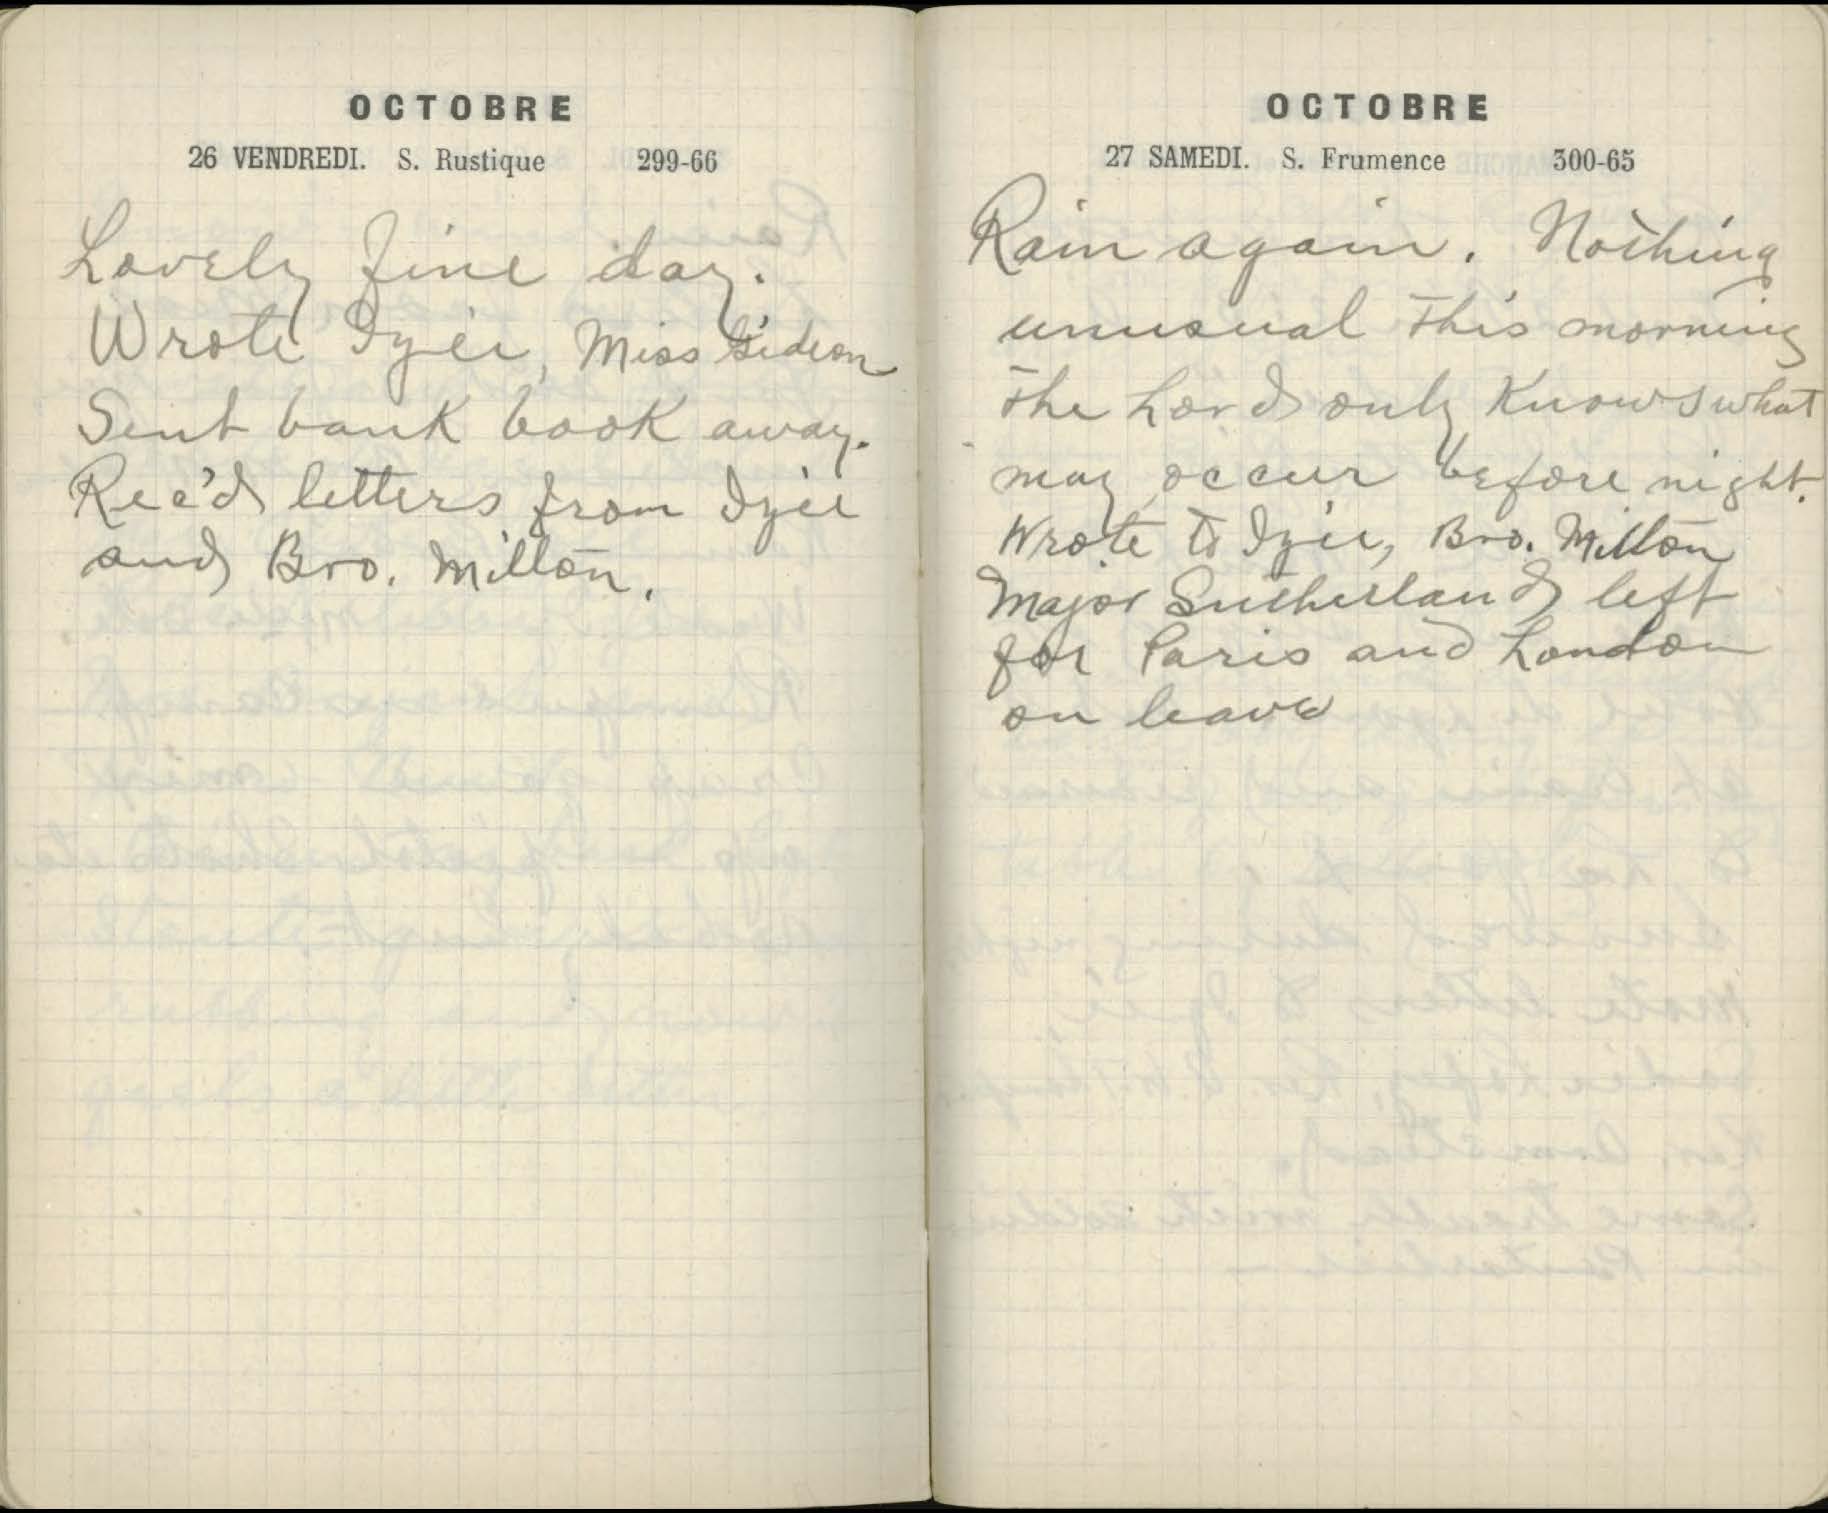 OCTOBRE
26 VENDREDI. S. Rustique 299-66
Lovely fine day.
Wrote Izie, Miss Gideon
Sent bank book away.
Rec'd letters from Izie
and Bro. Milton.
OCTOBRE
27 SAMEDI. S. Frumence 300-65
Rain again. Nothing
unusual this morning
The Lord only knows what
may occur before night.
Wrote to Izie, Bro. Milton
Major Sutherland left
for Paris and London
on leave